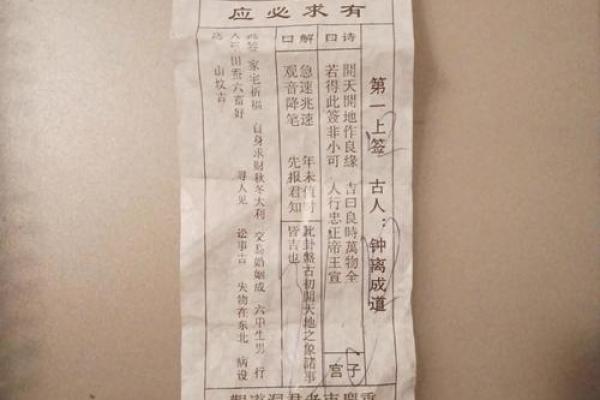 有求必应
第一上签　古人：钟离成道
诗曰
開天開地作良緣　吉日良時萬物全
若得此签非小可　人行忠正帝王宣
子宫
解曰
急速兆速　年未值时
观音降笔　先报君知
此卦盤古初開天地之象諸事
皆吉也
签　家宅祈福　自身求财秋冬大利　交易婚姻成　六甲生男　行
人至田蚕六畜好　寻人见　讼事吉　失物在东北　病设
送　山坟吉